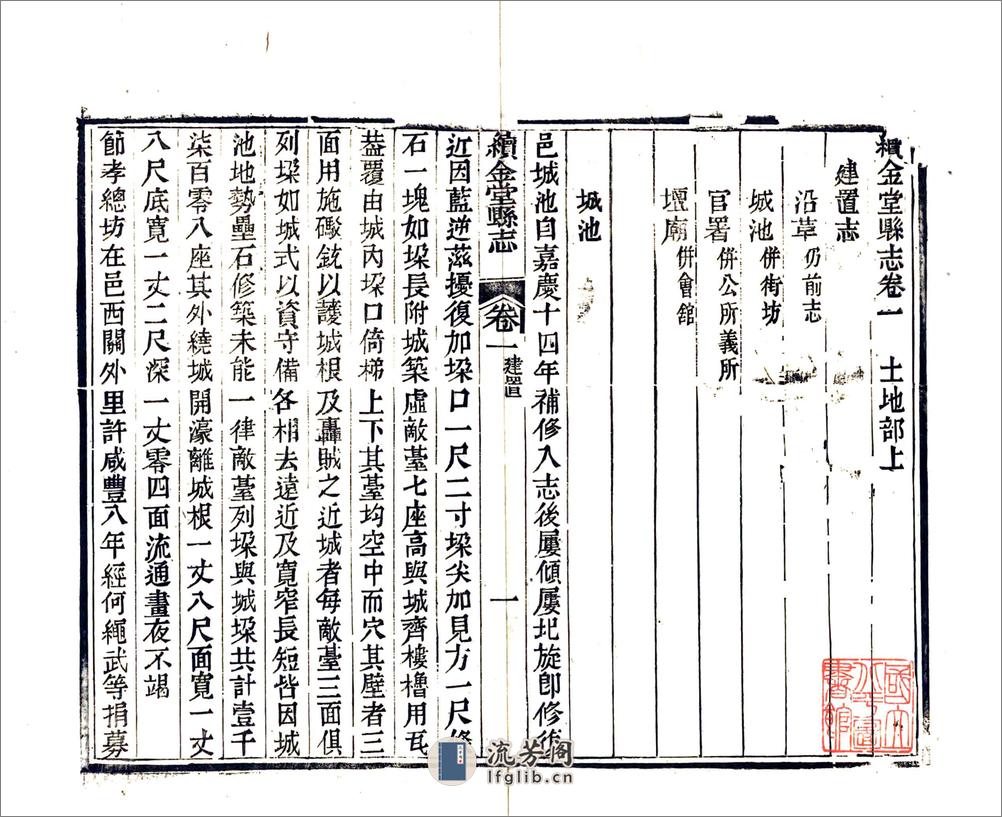 續金堂縣志卷一　土地部上
建置志
沿革仍前志
城池併街坊
官署併公所義所
壇廟併會館
城池
邑城池自嘉慶十四年補修入志後屢傾屢圯旋卽修復
續金堂縣志 卷一 建置 一
近因藍逆滋擾復加垜口一尺二寸垜尖加見方一尺條
石一塊如垜長附城築虛敵臺七座高與城齊樓櫓用瓦
葢覆由城內垜口倚梯上下其臺均空中而穴其壁者三
面用施礮銃以護城根及轟賊之近城者每敵臺三面俱
列垜如城式以資守備各相去遠近及寬窄長短皆因城
池地勢壘石修築未能一律敵臺列垜與城垜共計壹千
柒百零八座其外繞城開濠離城根一丈八尺面寬一丈
八尺底寬一丈二尺深一丈零四面流通晝夜不竭
節孝總坊在邑西關外里許咸豐八年經何繩武等捐募
國立北平圖書館
流芳閣
lfglib.cn